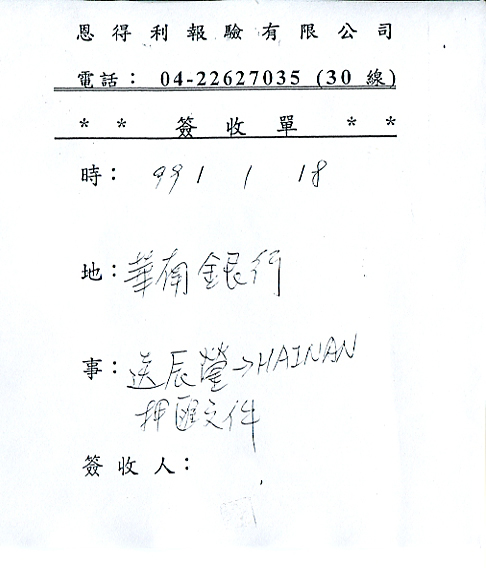 恩得利報驗有限公司
電話： 04-22627035 (30 線)
* * 簽收單 * *
時： 99 / 1 / 18
地：華南銀行
事：送辰瑩→HAINAN
押匯文件
簽收人：